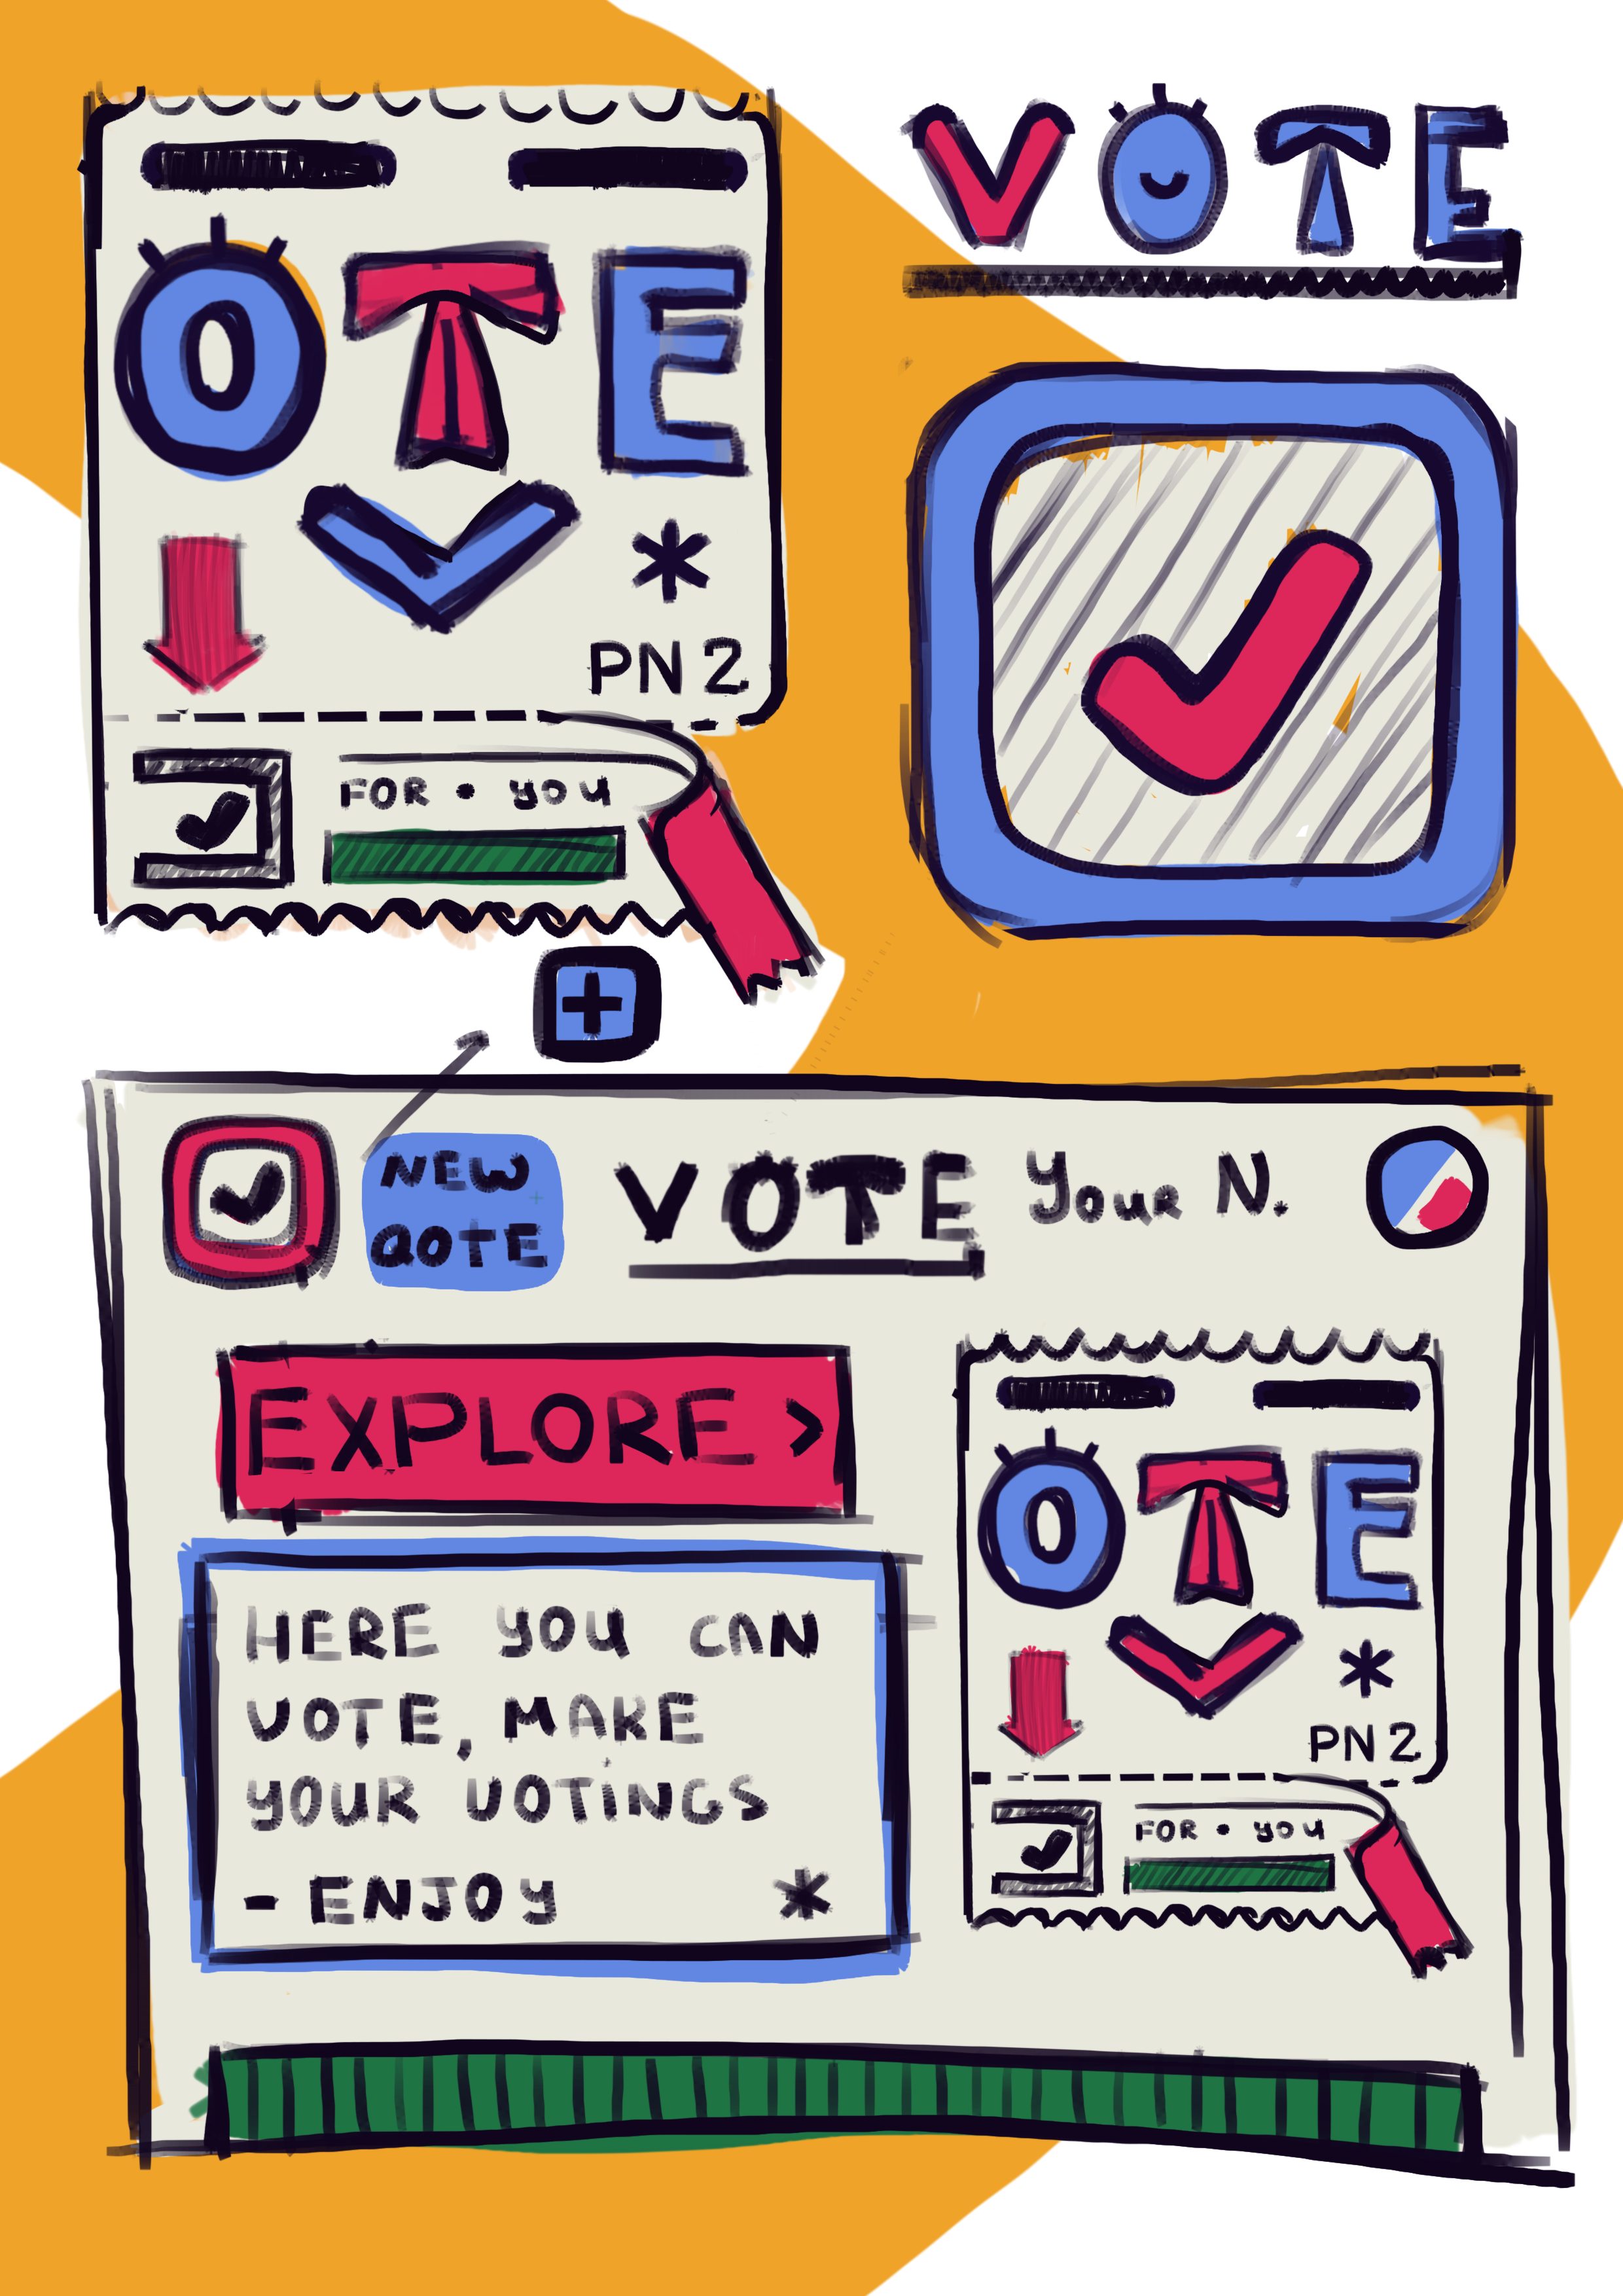 VOTE
OTE
V
*
PN 2
FOR • you
+
NEW
QOTE
VOTE
Your N.
EXPLORE >
HERE YOU CAN
VOTE, MAKE
YOUR VOTiNGS
- ENJOY *
OTE
V
*
PN 2
FOR • you